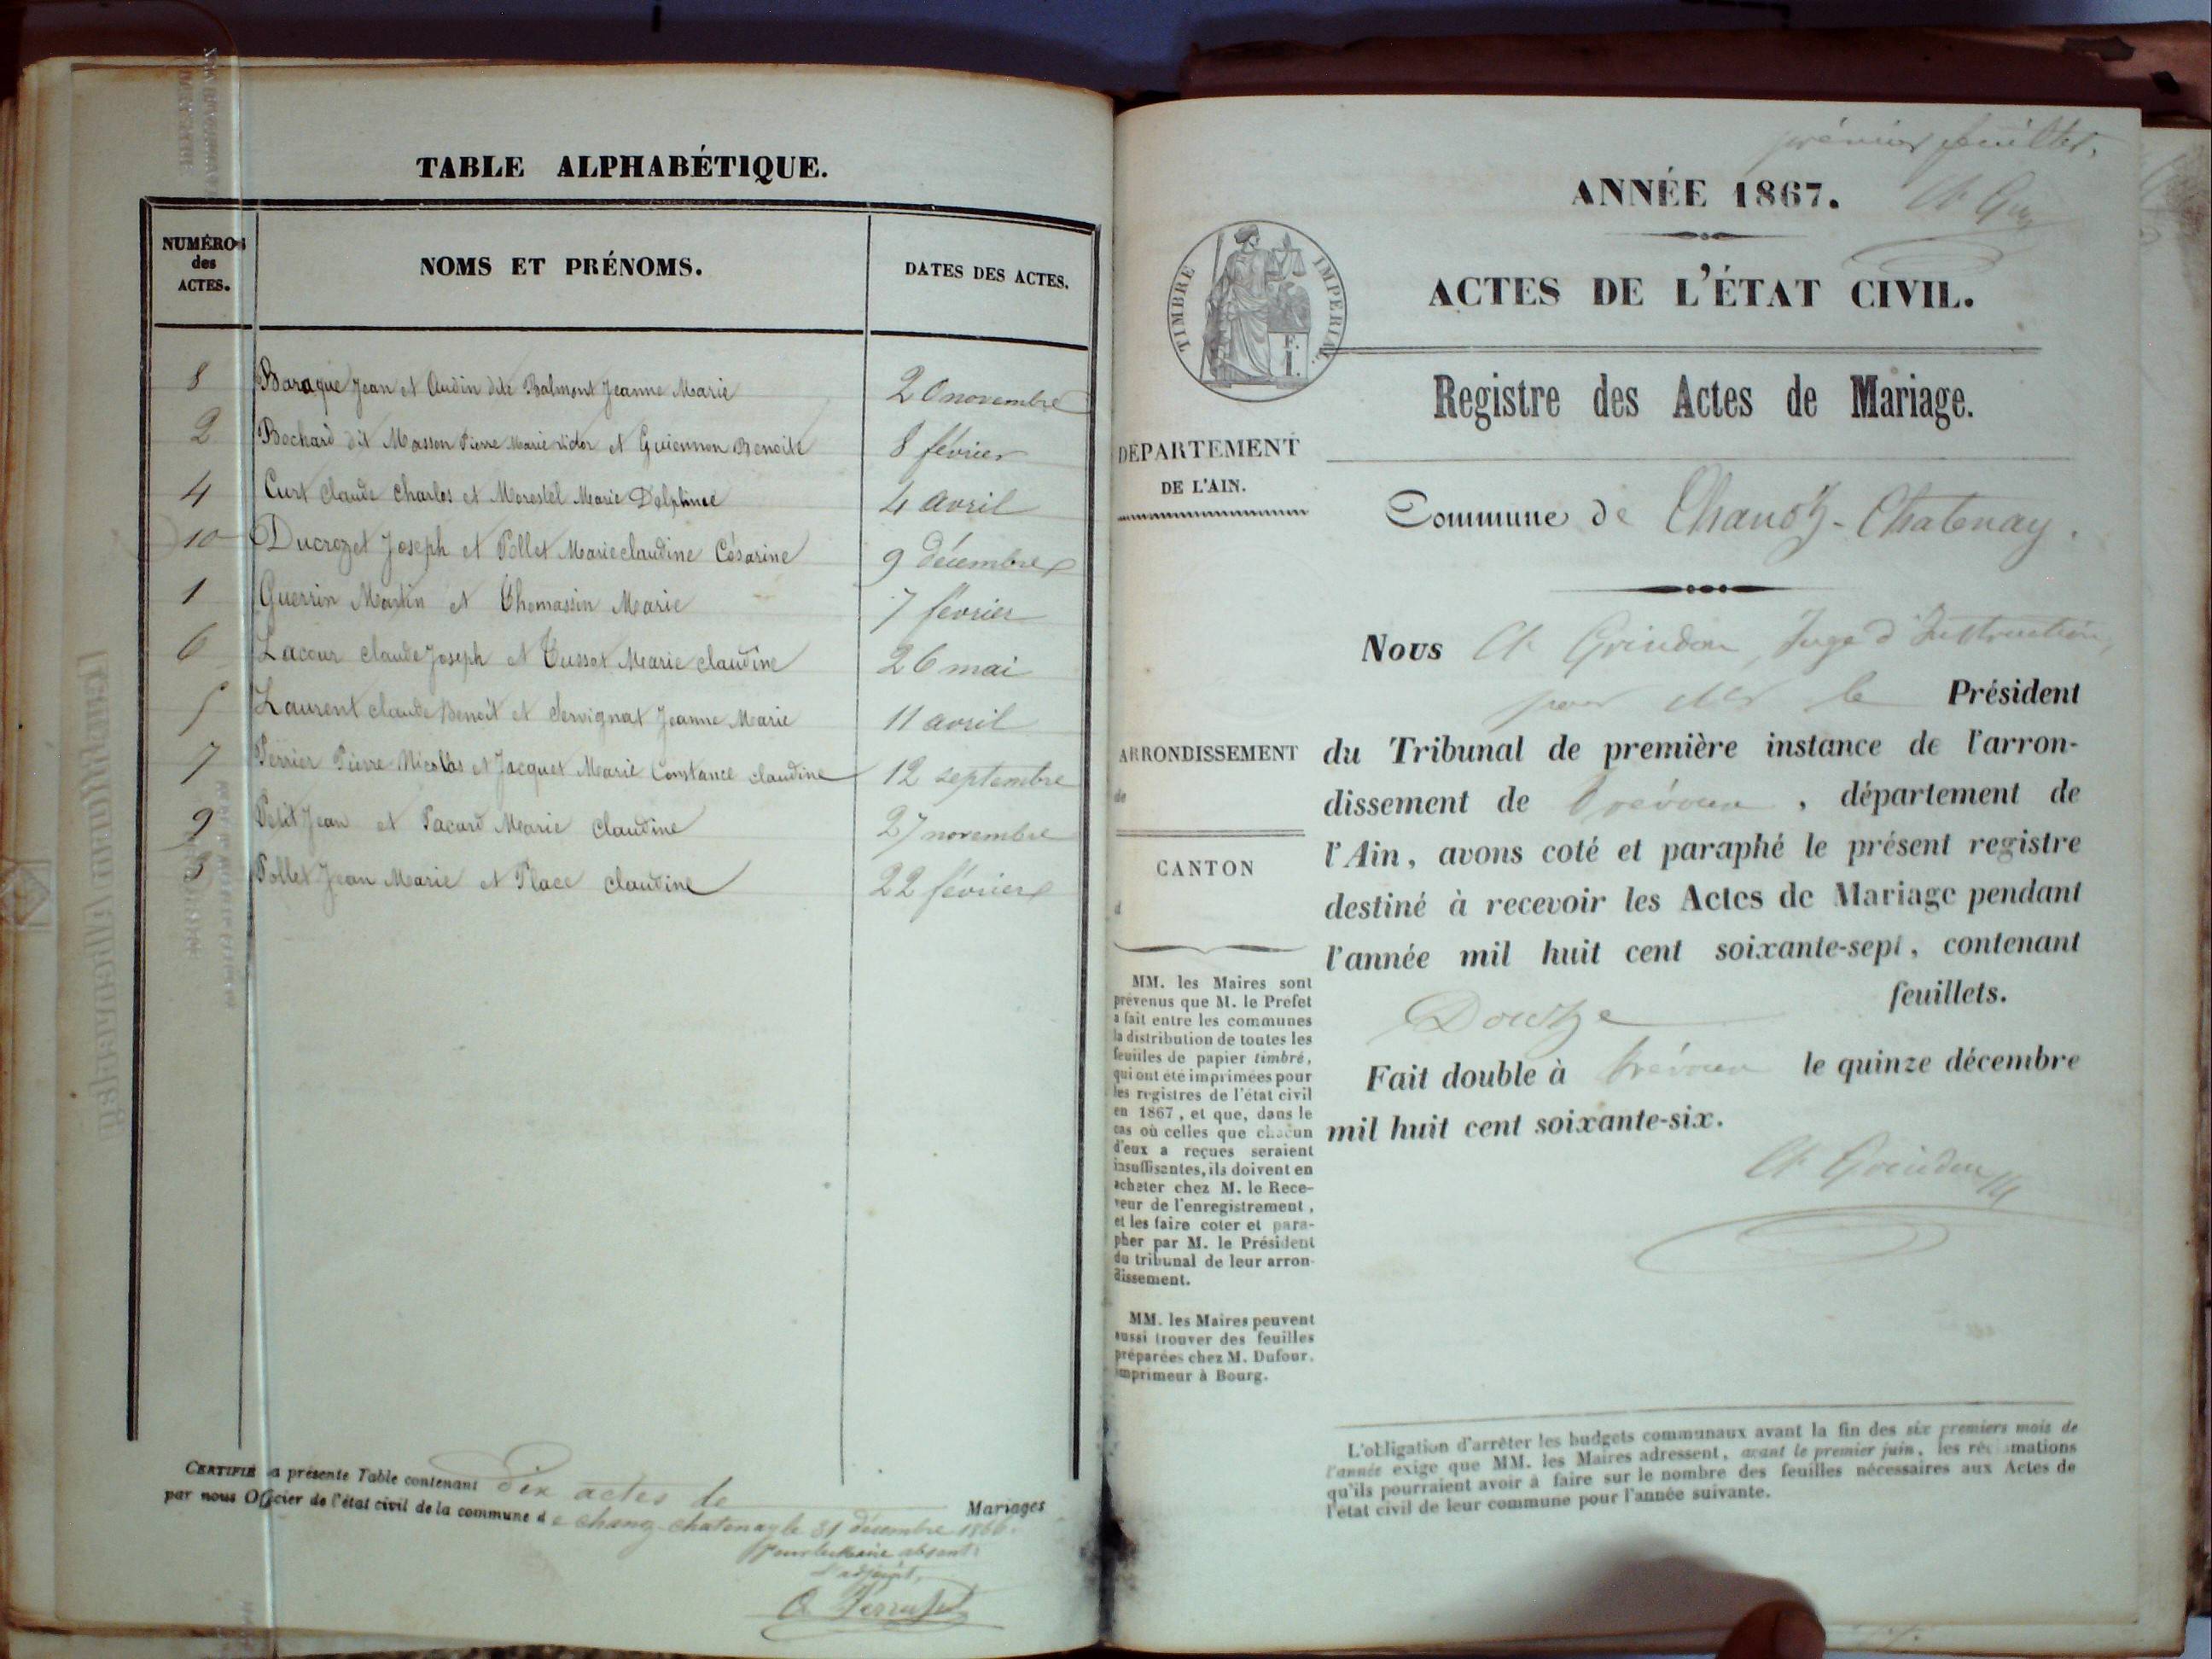 TABLE ALPHABÉTIQUE.
NUMÉROS
des
ACTES.
NOMS ET PRÉNOMS.
DATES DES ACTES.
8 Baraque Jean et Audin dite Balmont Jeanne Marie 20 novembre
2 Bochard dit Masson Pierre Marie Victor et Guiennon Benoite 8 février
4 Curt Claude Charles et Morestel Marie Delphine 4 avril
10 Ducrozet Joseph et Pollet Marie claudine Césarine 9 décembre
1 Guerrin Martin et Thomassin Marie 7 février
6 Lacour claude Joseph et Tusset Marie claudine 26 mai
5 Laurent claude Benoît et Servignat Jeanne Marie 11 avril
7 Perrier Pierre Nicolas et Jacquet Marie Constance claudine 12 septembre
9 Petit Jean et Pacard Marie Claudine 27 novembre
3 Pollet Jean Marie et Place claudine 22 février
CERTIFIÉ la présente Table contenant dix actes de Mariages
par nous Officier de l'état civil de la commune de chanoz-chatenay le 31 décembre 1866.
Pour le Maire absent:
L'adjoint,
premier feuillet.
ANNÉE 1867.
ACTES DE L'ÉTAT CIVIL.
TIMBRE IMPERIAL
Registre des Actes de Mariage.
DÉPARTEMENT
DE L'AIN.
Commune de Chanoz-Chatenay.
Nous Ch Grindon, Juge d'Instruction,
pour Mr le Président
ARRONDISSEMENT
de
CANTON
d
du Tribunal de première instance de l'arron-
dissement de Trévoux, département de
l'Ain, avons coté et paraphé le présent registre
destiné à recevoir les Actes de Mariage pendant
l'année mil huit cent soixante-sept, contenant
Douze feuillets.
Fait double à Trévoux le quinze décembre
mil huit cent soixante-six.
Ch Grindon
MM. les Maires sont
prévenus que M. le Préfet
a fait entre les communes
la distribution de toutes les
feuilles de papier timbré,
qui ont été imprimées pour
les registres de l'état civil
en 1867, et que, dans le
cas où celles que chacun
d'eux a reçues seraient
insuffisantes, ils doivent en
acheter chez M. le Rece-
veur de l'enregistrement,
et les faire coter et para-
pher par M. le Président
du tribunal de leur arron-
dissement.
MM. les Maires peuvent
aussi trouver des feuilles
préparées chez M. Dufour,
imprimeur à Bourg.
L'obligation d'arrêter les budgets communaux avant la fin des six premiers mois de
l'année exige que MM. les Maires adressent, avant le premier juin, les réclamations
qu'ils pourraient avoir à faire sur le nombre des feuilles nécessaires aux Actes de
l'état civil de leur commune pour l'année suivante.